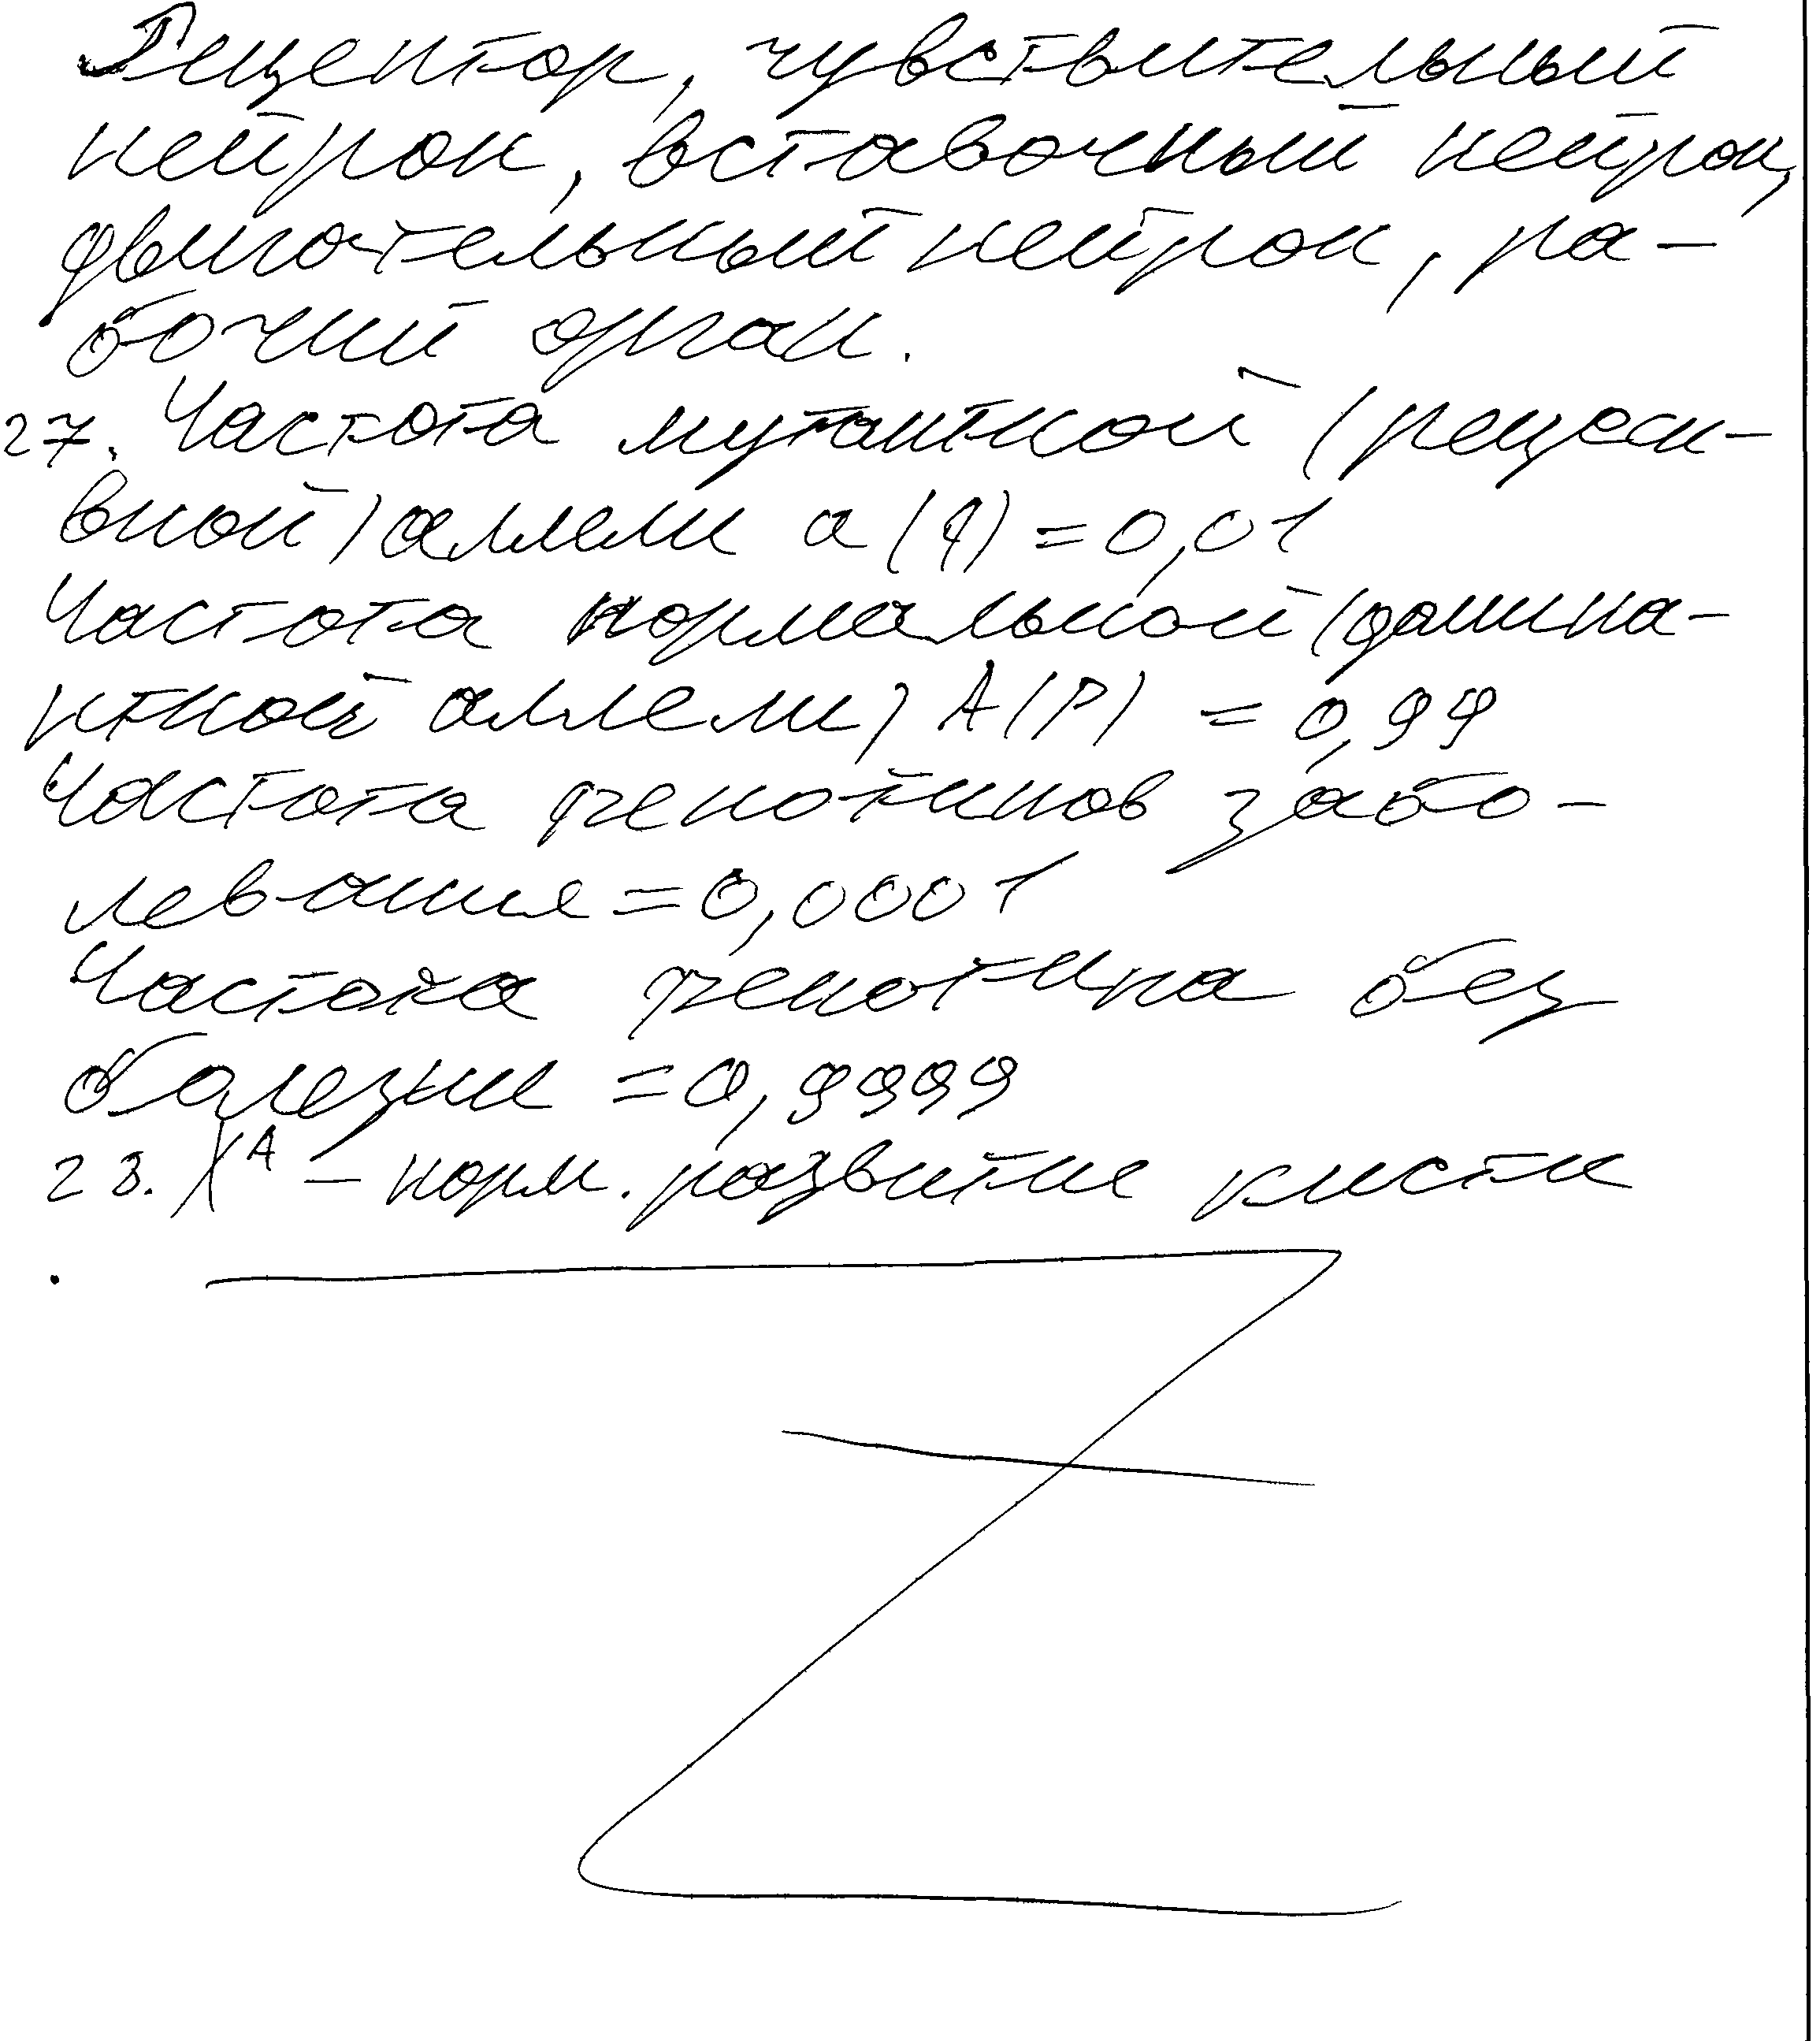 Рецептор, чувствительный
нейрон, вставочный нейрон,
двигательный нейрон, ра-
бочий орган.
27. Частота мутантной (рецесси-
вной) аллели a (q) = 0,01
Частота нормальной (домина-
нтной аллели) A (P) = 0,99
Частота фенотипов забо-
левания = 0,0001
Частота фенотипа без
болезни = 0,9999
28. Xᴬ – норм. развитие кисти